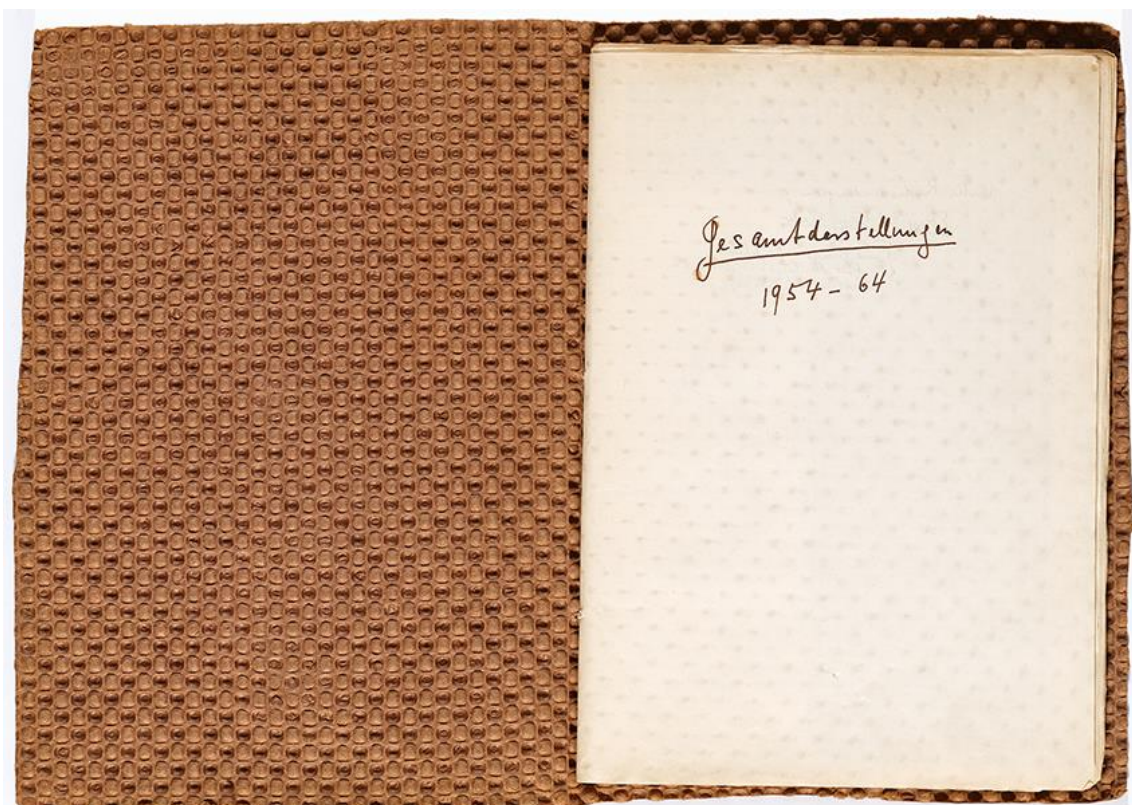 Gesamtdarstellungen
1954 - 64